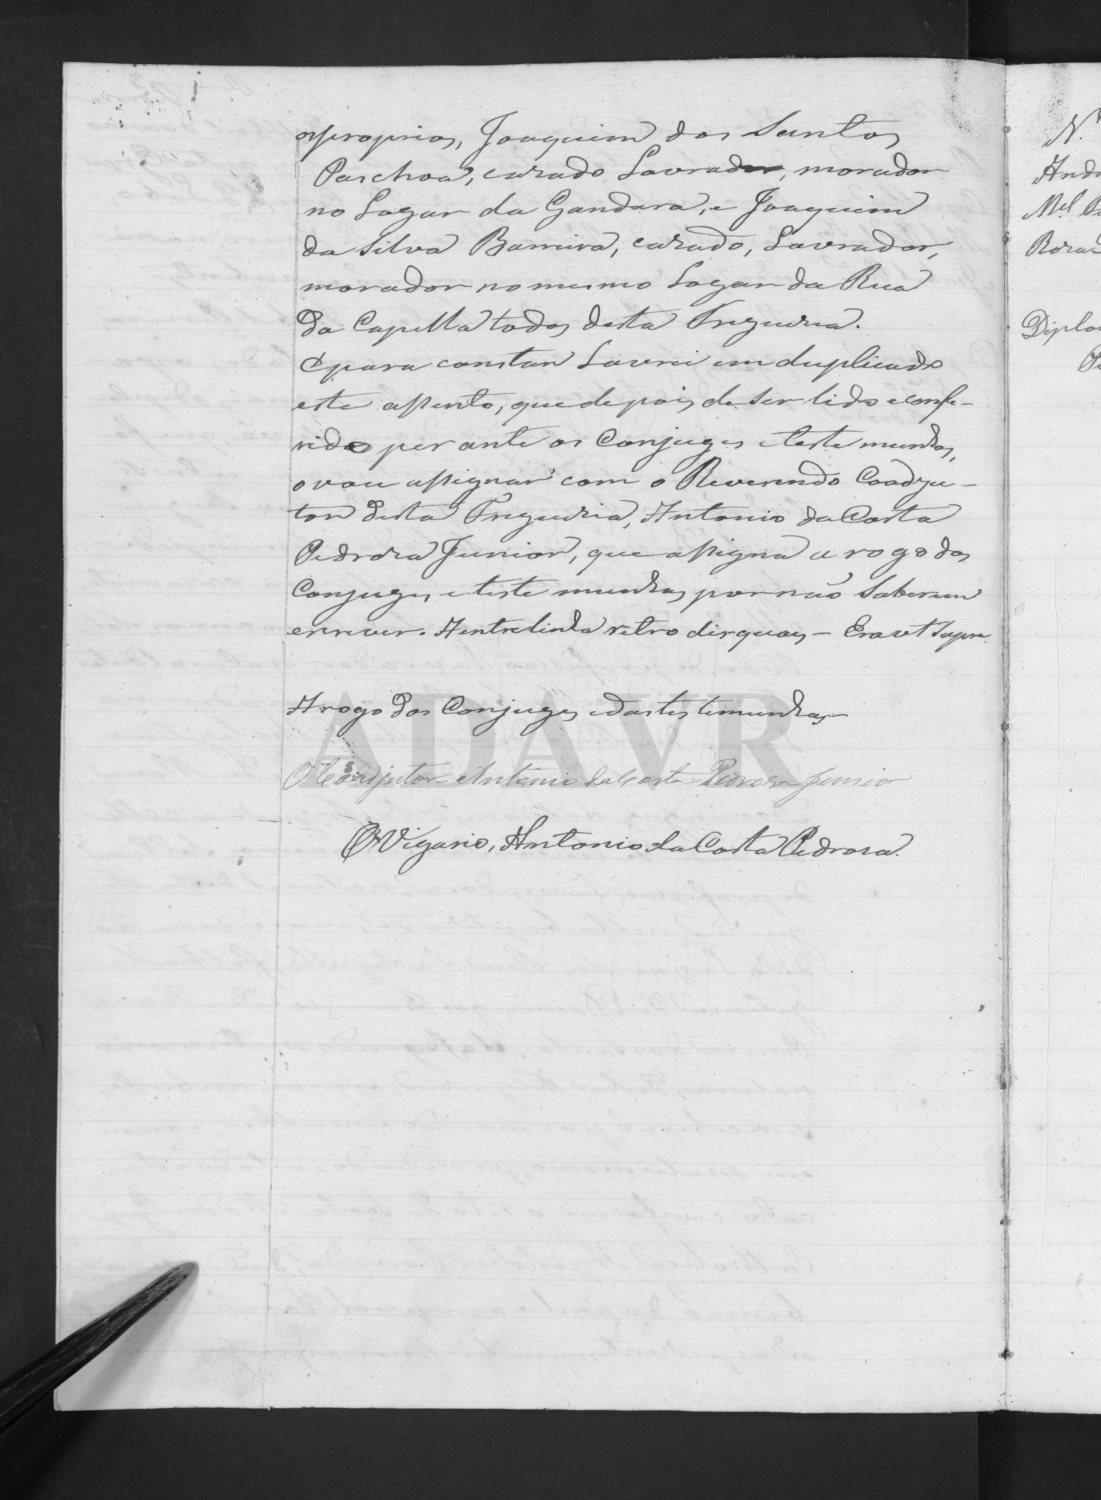 os proprios, Joaquim dos Santos
Paschoa, cazado Lavrador, morador
no Logar da Gandara, e Joaquim
da Silva Barreira, cazado, Lavrador,
morador no mesmo Logar da Rua
da Capella todos desta Freguezia.
E para constar Lavrei em duplicado
este assento, que depois de ser lido e confe-
rido perante os Conjuges e teste munhas,
o vou assignar com o Reverendo Coadju-
tor desta Freguezia, Antonio da Costa
Pedroza Junior, que assigna a rogo dos
Conjuges e teste munhas por não saberem
escrever. A entrelinha retro diz quaes – Era ut supra.
A rogo dos Conjuges e das testemunhas
O Coadjutor Antonio da Costa Pedroza Junior
O Vigario, Antonio da Costa Pedroza.
ADAVR
N.º
Mel
Roza